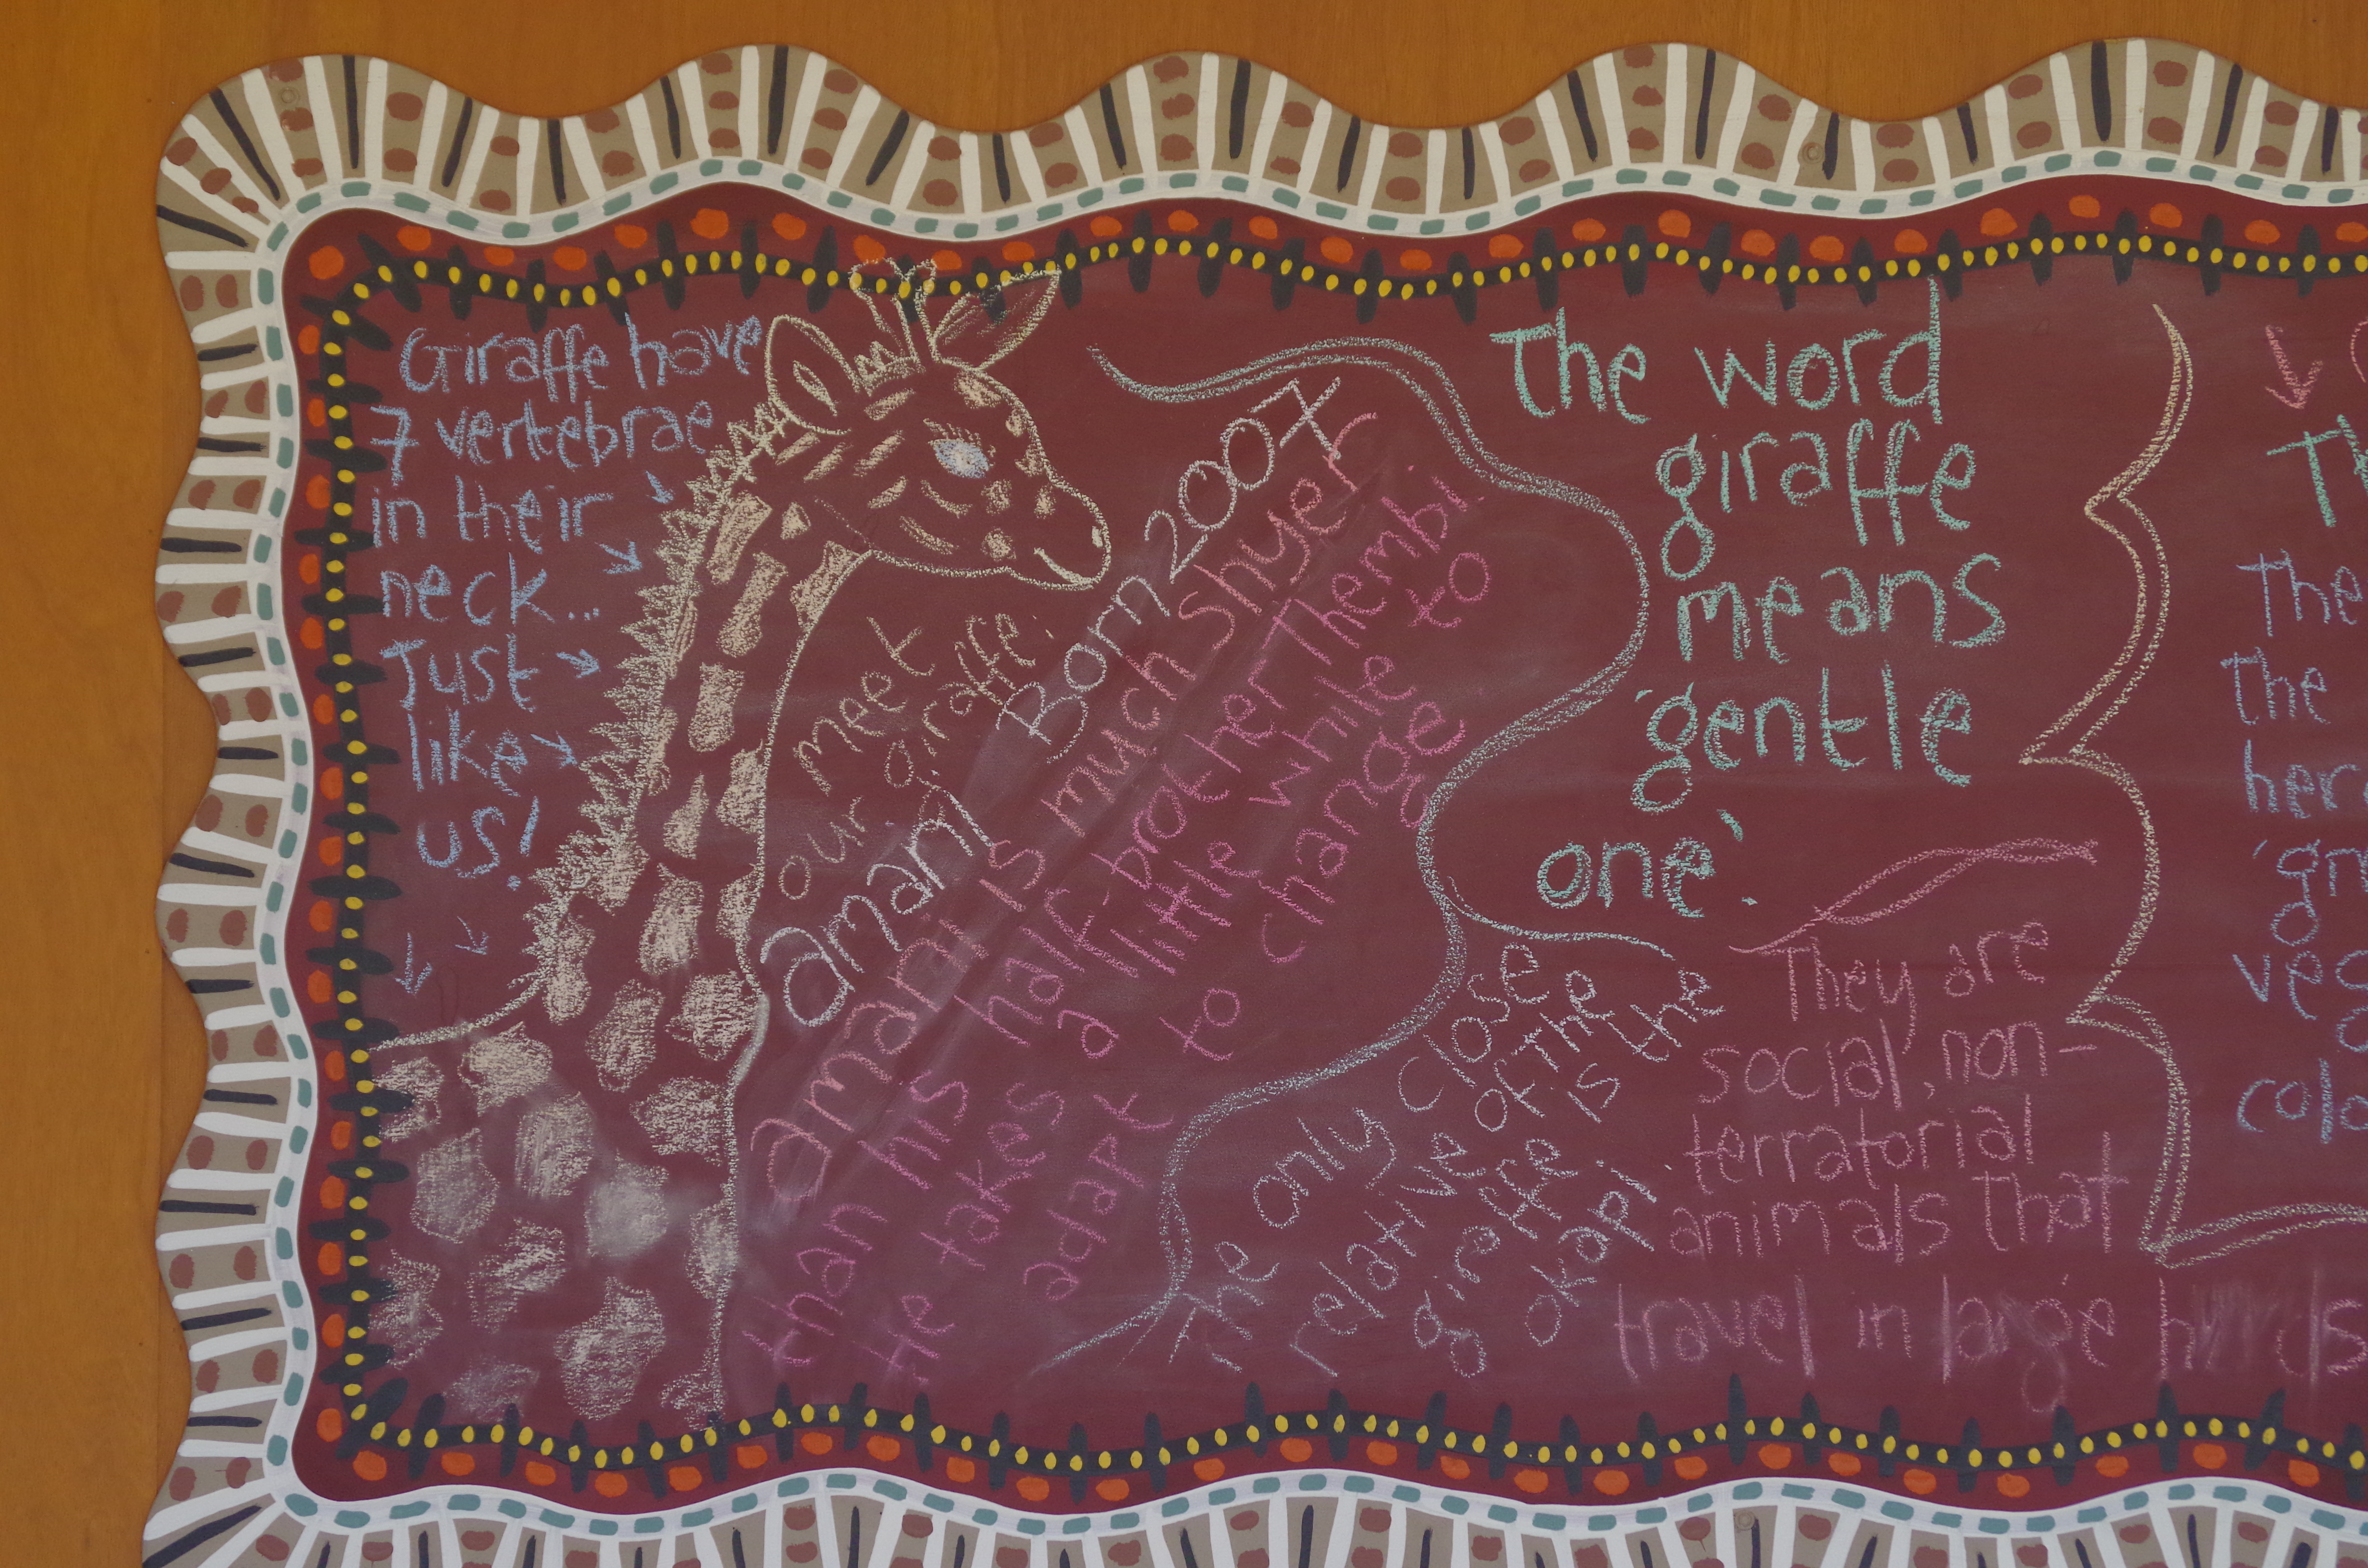 Giraffe have
7 vertebrae
in their
neck...
Just
like
us!
meet
our giraffe:
amani
Born 2007
amani is much shyer
than his half brother Thembi.
He takes a little while to
adapt to changes
The word
giraffe
means
'gentle
one'.
The only close
relative of the
giraffe is the
okapi
They are
social, non-
terratorial
animals that
travel in large
The
the
veg